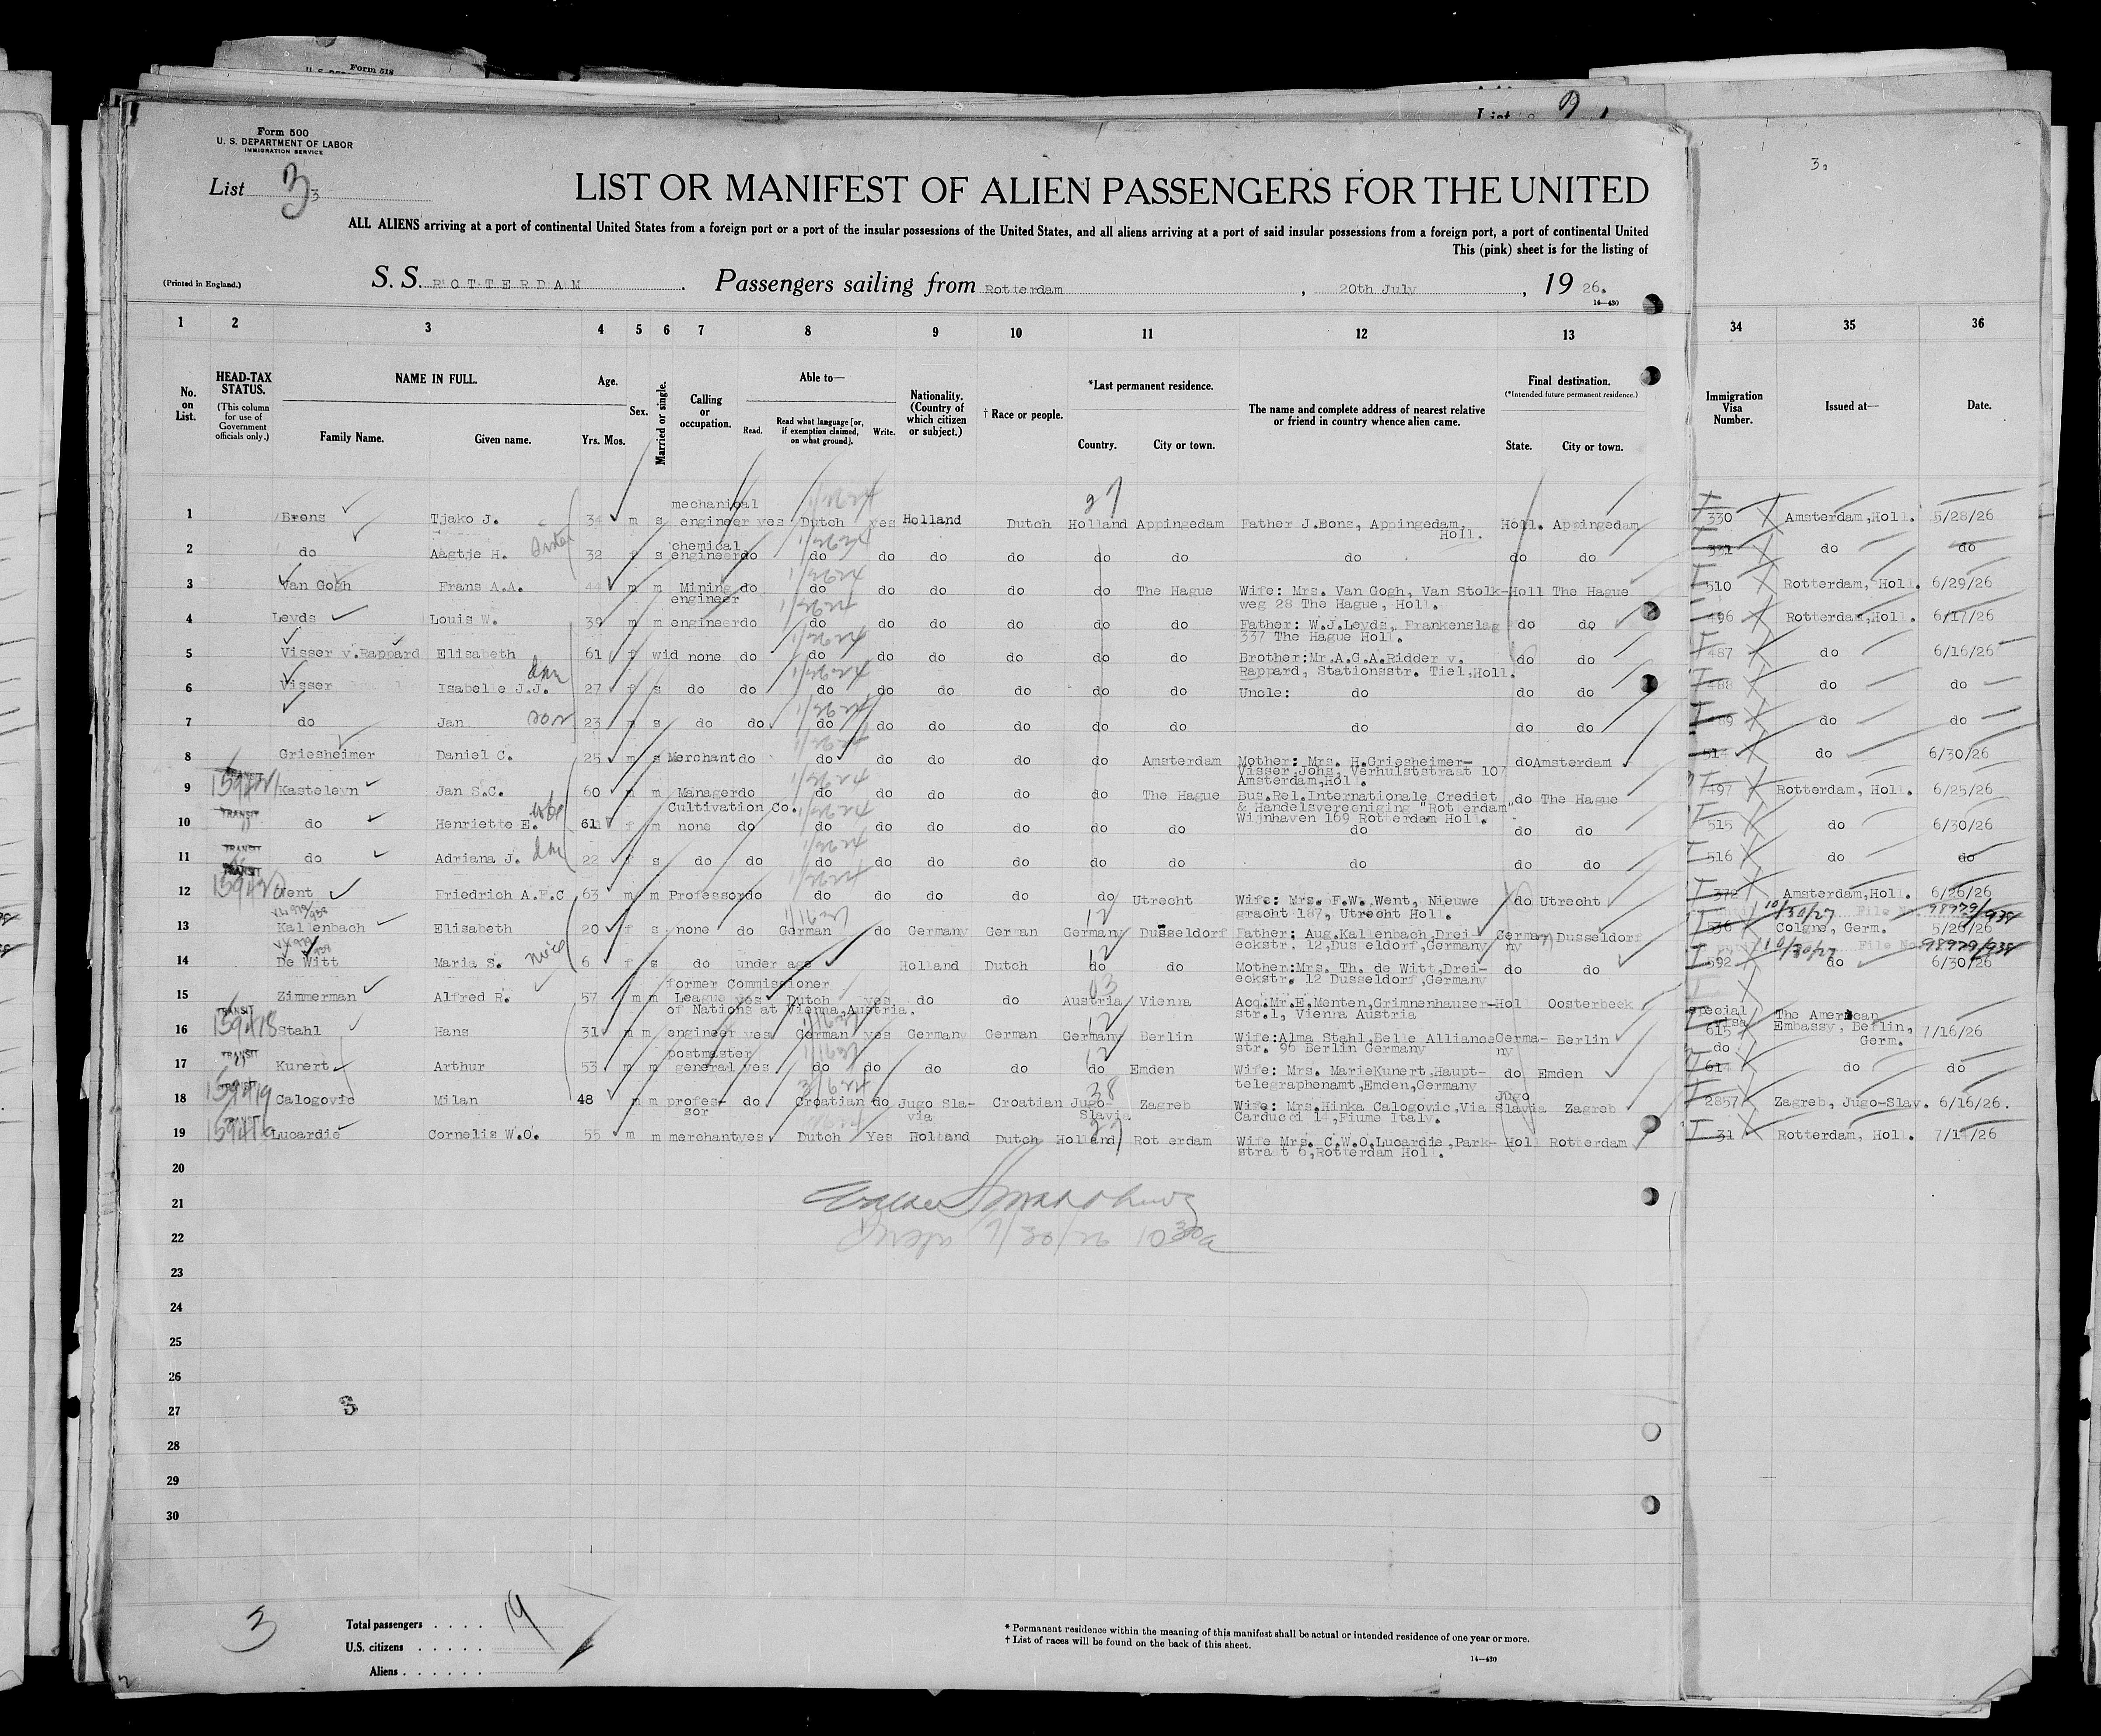 Form 518
Form 500
U. S. DEPARTMENT OF LABOR
IMMIGRATION SERVICE
List 3 3
LIST OR MANIFEST OF ALIEN PASSENGERS FOR THE UNITED
ALL ALIENS arriving at a port of continental United States from a foreign port or a port of the insular possessions of the United States, and all aliens arriving at a port of said insular possessions from a foreign port, a port of continental United
This (pink) sheet is for the listing of
(Printed in England.) S. S. ROTTERDAM. Passengers sailing from Rotterdam, 20th July, 19 26.
14—430
1 2 3 4 5 6 7 8 9 10 11 12 13 34 35 36
No. on List.
HEAD-TAX STATUS.
(This column for use of Government officials only.)
NAME IN FULL.
Family Name. Given name.
Age.
Yrs. Mos.
Sex.
Married or single.
Calling or occupation.
Able to—
Read. Read what language [or, if exemption claimed, on what ground]. Write.
Nationality. (Country of which citizen or subject.)
† Race or people.
*Last permanent residence.
Country. City or town.
The name and complete address of nearest relative or friend in country whence alien came.
Final destination.
(*Intended future permanent residence.)
State. City or town.
Immigration Visa Number.
Issued at—
Date.
1 Brons Tjako J. 34 m s mechanical engineer yes Dutch yes Holland Dutch Holland Appingedam Father J.Bons, Appingedam, Holl. Holl. Appingedam 330 Amsterdam,Holl. 5/28/26
2 do Aagtje H. sister 32 f s chemical engineer do do do do do do do do do do 331 do do
3 Van Gogh Frans A.A. 44 m m Mining engineer do do do do do do The Hague Wife: Mrs. Van Gogh, Van Stolk-weg 28 The Hague, Holl. Holl The Hague 510 Rotterdam, Holl. 6/29/26
4 Leyds Louis W. 39 m m engineer do do do do do do do Father: W.J.Leyds, Frankenslag 337 The Hague Holl. do do 496 Rotterdam,Holl. 6/17/26
5 Visser v.Rappard Elisabeth 61 f wid none do do do do do do do Brother:Mr.A.G.A.Ridder v. Rappard, Stationsstr. Tiel,Holl. do do 487 do 6/16/26
6 Visser Isabelle J.J. dau 27 f s do do do do do do do do Uncle: do do do 488 do do
7 do Jan son 23 m s do do do do do do do do do do do 489 do do
8 Griesheimer Daniel C. 25 m s Merchant do do do do do do Amsterdam Mother: Mrs. H.Griesheimer-Visser,Johs, Verhulststraat 107 Amsterdam,Holl. do Amsterdam 514 do 6/30/26
9 TRANSIT Kasteleyn Jan S.C. 60 m m Manager Cultivation Co. do do do do do do The Hague Bus.Rel.Internationale Crediet & Handelsvereeniging "Rotterdam" Wijnhaven 169 Rotterdam Holl. do The Hague 497 Rotterdam, Holl. 6/25/26
10 TRANSIT do Henriette E. wife 61 f m none do do do do do do do do do do 515 do 6/30/26
11 TRANSIT do Adriana J. dau 22 f s do do do do do do do do do do do 516 do do
12 TRANSIT Went Friedrich A.F.C 63 m m Professor do do do do do do Utrecht Wife: Mrs. F.W. Went, Nieuwe gracht 187, Utrecht Holl. do Utrecht 372 Amsterdam,Holl. 6/26/26
10/30/27 File No 98979/938
13 Kallenbach Elisabeth 20 f s none do German do Germany German Germany Dusseldorf Father: Aug.Kallenbach,Drei-eckstr. 12,Dusseldorf,Germany Germany Dusseldorf 536 Cologne, Germ. 5/26/26
10/30/27 File No 98979/938
14 De Witt Maria S. niece 6 f s do under age Holland Dutch do do Mother:Mrs. Th. de Witt,Drei-eckstr. 12 Dusseldorf,Germany do do 592 do 6/30/26
15 Zimmerman Alfred R. 57 m m former Commissioner League of Nations at Vienna,Austria. yes Dutch yes do do Austria Vienna Acq.Mr.E.Menten,Grimnenhauser-str.1, Vienna Austria Holl Oosterbeek
16 TRANSIT 159418 Stahl Hans 31 m m engineer yes German yes Germany German Germany Berlin Wife:Alma Stahl,Belle Alliance str. 96 Berlin Germany Germany Berlin Special visa 615 The American Embassy, Berlin, Germ. 7/16/26
17 TRANSIT Kunert Arthur 53 m m postmaster general yes do do do do do Emden Wife: Mrs. MarieKunert,Haupt-telegraphenamt,Emden,Germany do Emden do 614 do do
18 TRANSIT 159419 Calogovic Milan 48 m m professor do Croatian do Jugo Slavia Croatian Jugo-Slavia Zagreb Wife: Mrs.Hinka Calogovic,Via Carducci 14,Fiume Italy. Jugo Slavia Zagreb 2857 Zagreb, Jugo-Slav. 6/16/26.
19 TRANSIT 159416 Lucardie Cornelis W.O. 55 m m merchant yes Dutch Yes Holland Dutch Holland Rotterdam Wife Mrs. C.W.O.Lucardie,Park-straat 6,Rotterdam Holl. Holl Rotterdam 31 Rotterdam, Holl.
20
21
22 7/30/26 10 30 a
23
24
25
26
27
28
29
30
3
Total passengers . . . . 19
U.S. citizens . . . . .
Aliens . . . . . .
* Permanent residence within the meaning of this manifest shall be actual or intended residence of one year or more.
† List of races will be found on the back of this sheet.
14—430